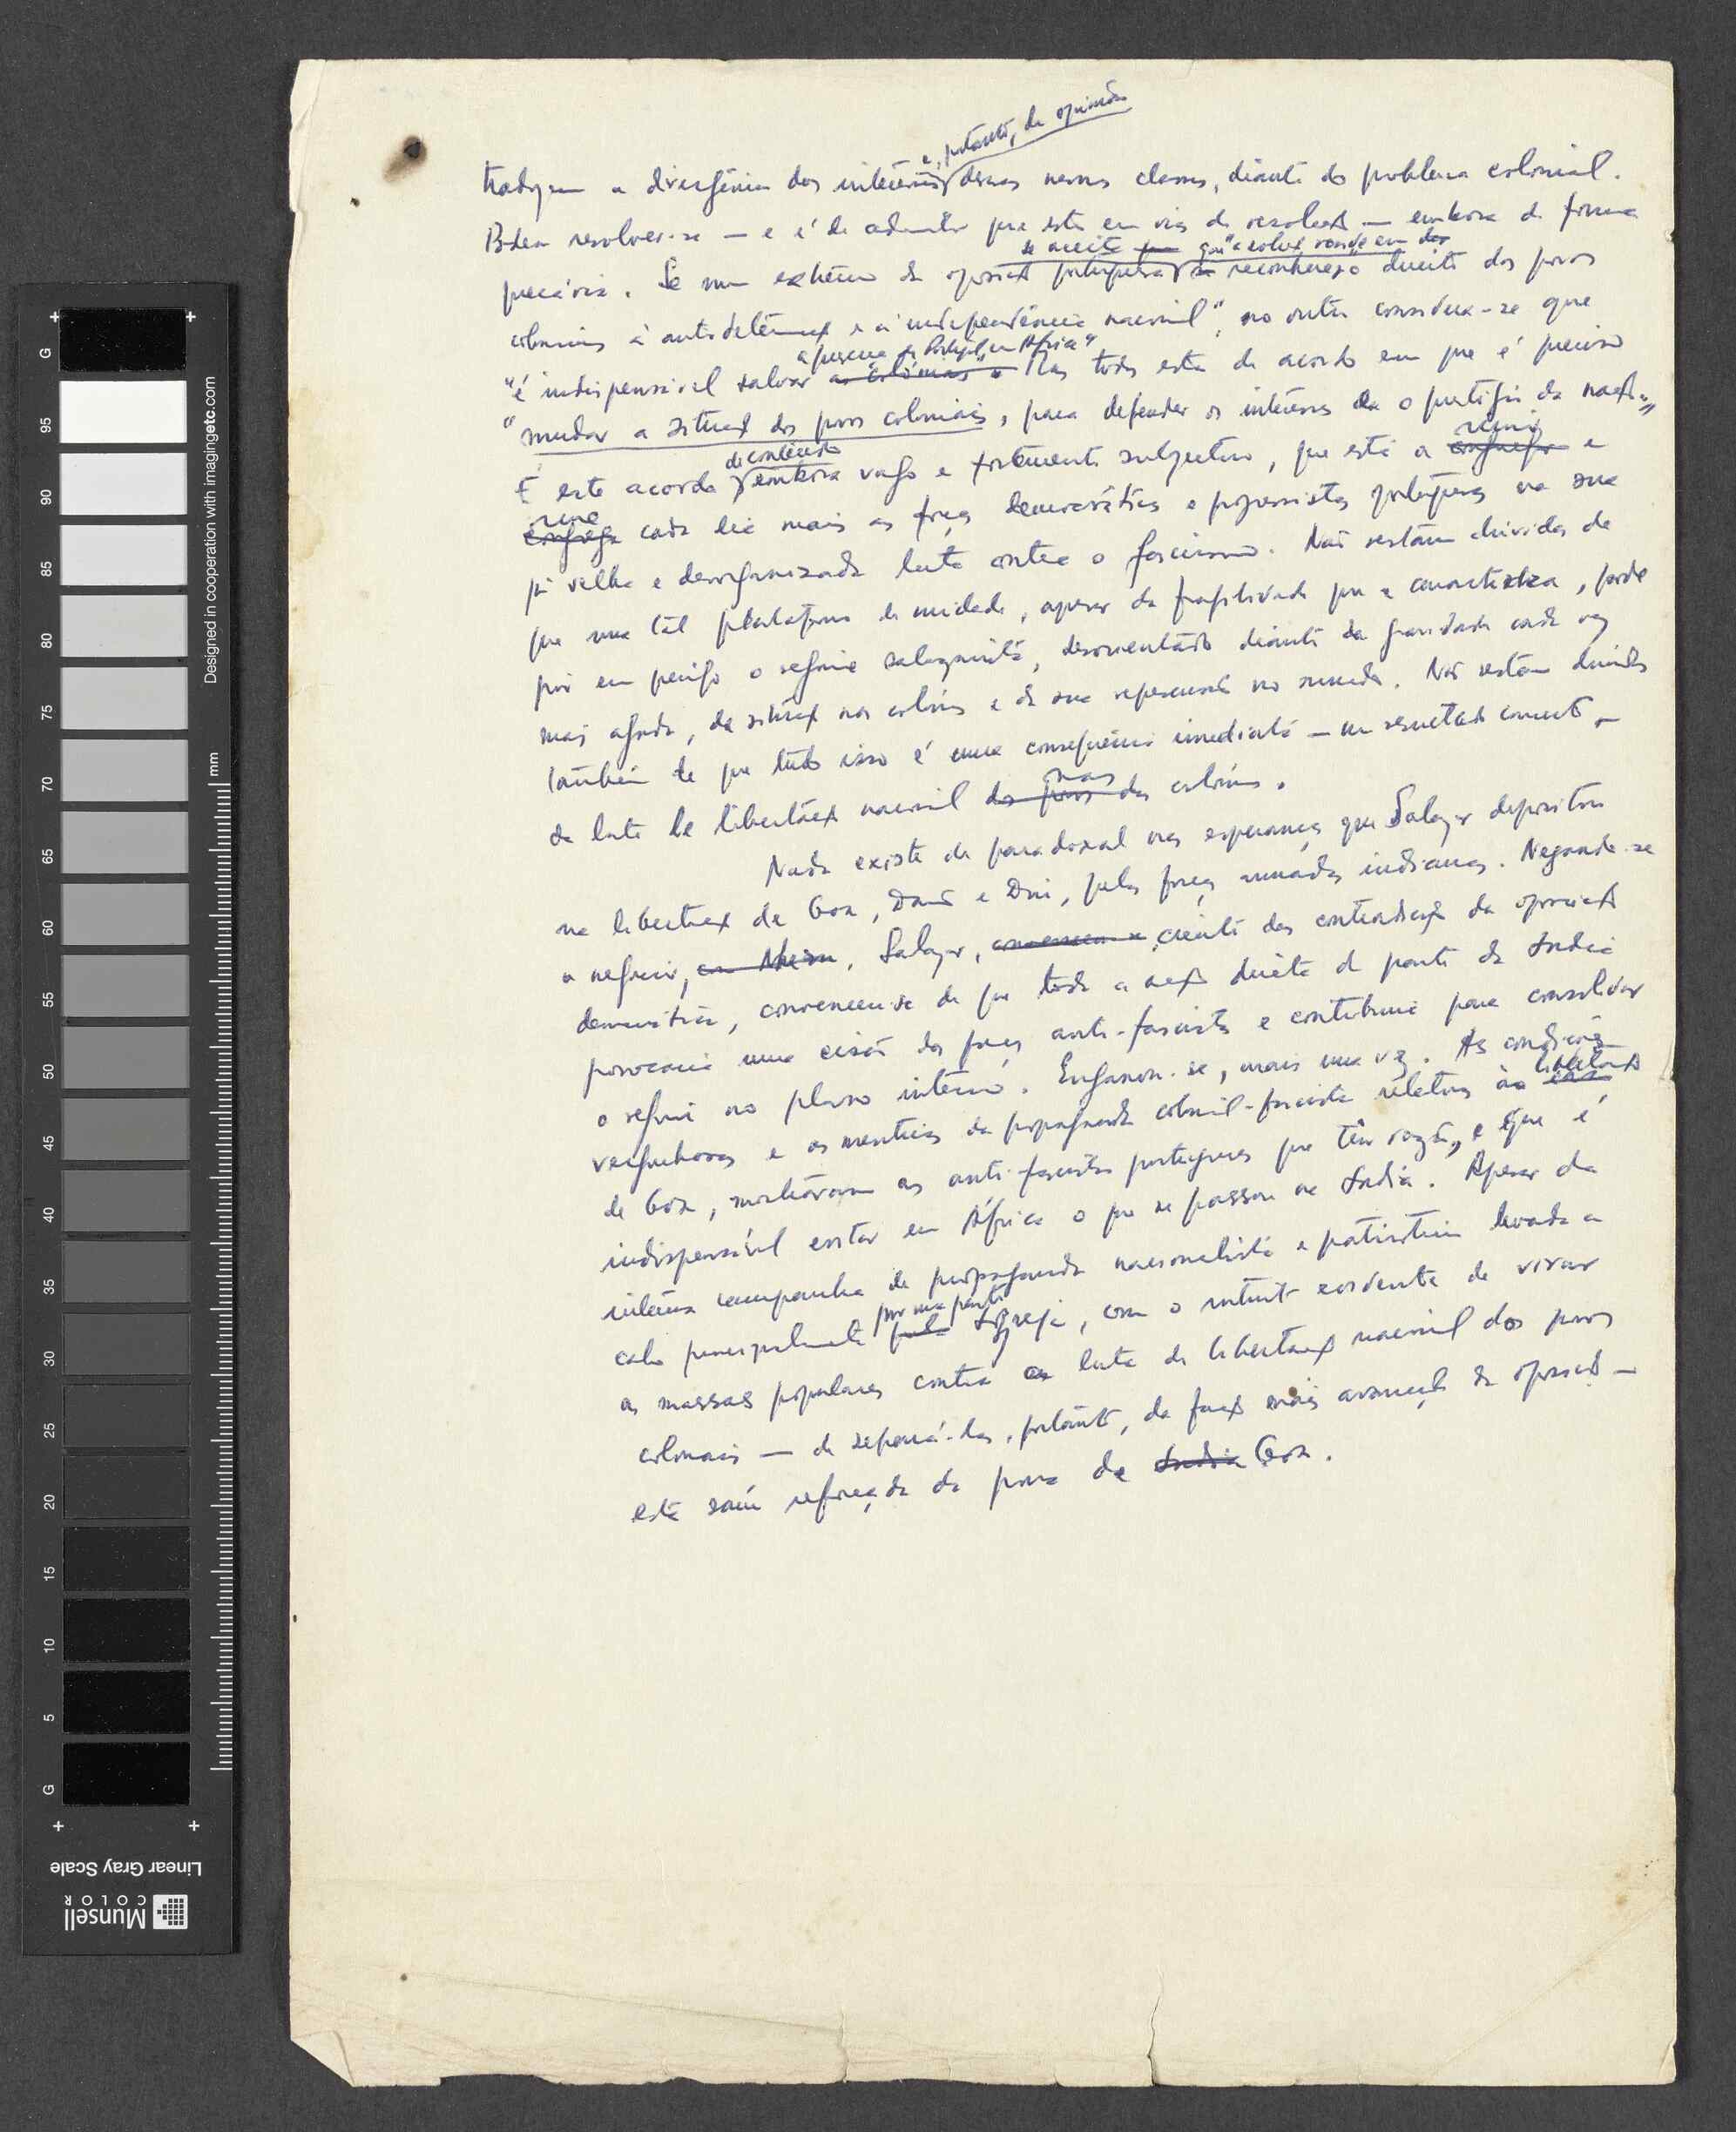 e, portanto, de opinião
traduzem a divergência dos interesses dessas mesmas classes, diante do problema colonial.
Podem resolver-se — e é de admitir que estão em vias de resolução — embora de forma
se aceita que a solução reside em
precária. Se num extremo da oposição portuguesa reconhecer o direito dos povos
coloniais à autodeterminação e à independência nacional", no outro considera-se que
a presença de Portugal em África"
"é indispensável salvar as colónias Mas todos estão de acordo em que é preciso
"mudar a situação dos povos coloniais, para defender os interesses e o prestígio da nação"
de conteúdo reunir
É este acordo embora vago e fortemente subjectivo, que está a e
reune
cada dia mais as forças democráticas e progressistas portuguesas na sua
já velha e desorganizada luta contra o fascismo. Não restam dúvidas de
que uma tal plataforma de unidade, apesar da fragilidade que a caracteriza, pode
pôr em perigo o regime salazarista, desorientado diante da gravidade cada vez
mais aguda, da situação nas colónias e da sua repercussão no mundo. Não restam dúvidas
também de que tudo isso é uma consequência imediata — um resultado concreto —
nas
da luta de libertação nacional dos povos das colónias.
Nada existe de paradoxal nas esperanças que Salazar depositou
na libertação de Goa, Damão e Diu, pelas forças armadas indianas. Negando-se
a negociar, Salazar, ciente das contradições da oposição
democrática, convenceu-se de que toda a acção directa de parte da India
provocaria uma cisão das forças anti-fascistas e contribuiria para consolidar
o regime no plano interno. Enganou-se, mais uma vez. As condições
libertação
vergonhosas e as mentiras da propaganda colonial-fascista relativas à
de Goa, mostraram aos anti-fascistas portugueses que têm razão, e que é
indispensável evitar em África o que se passou na India. Apesar da
intensa campanha de propaganda nacionalista e patrioteira levada a
por uma parte
cabo principalmente pela Igreja, com o intuito evidente de virar
as massas populares contra a luta de libertação nacional dos povos
coloniais — de separá-las, portanto, da facção mais avançada da oposição —
esta saiu reforçada da prova de India Goa.
Designed in cooperation with imagingetc.com
mm
G 95 90 85 80 75 70 65 60 55 50 45 40 35 30 25 20 15 10 5 G
Linear Gray Scale
Munsell
COLOR